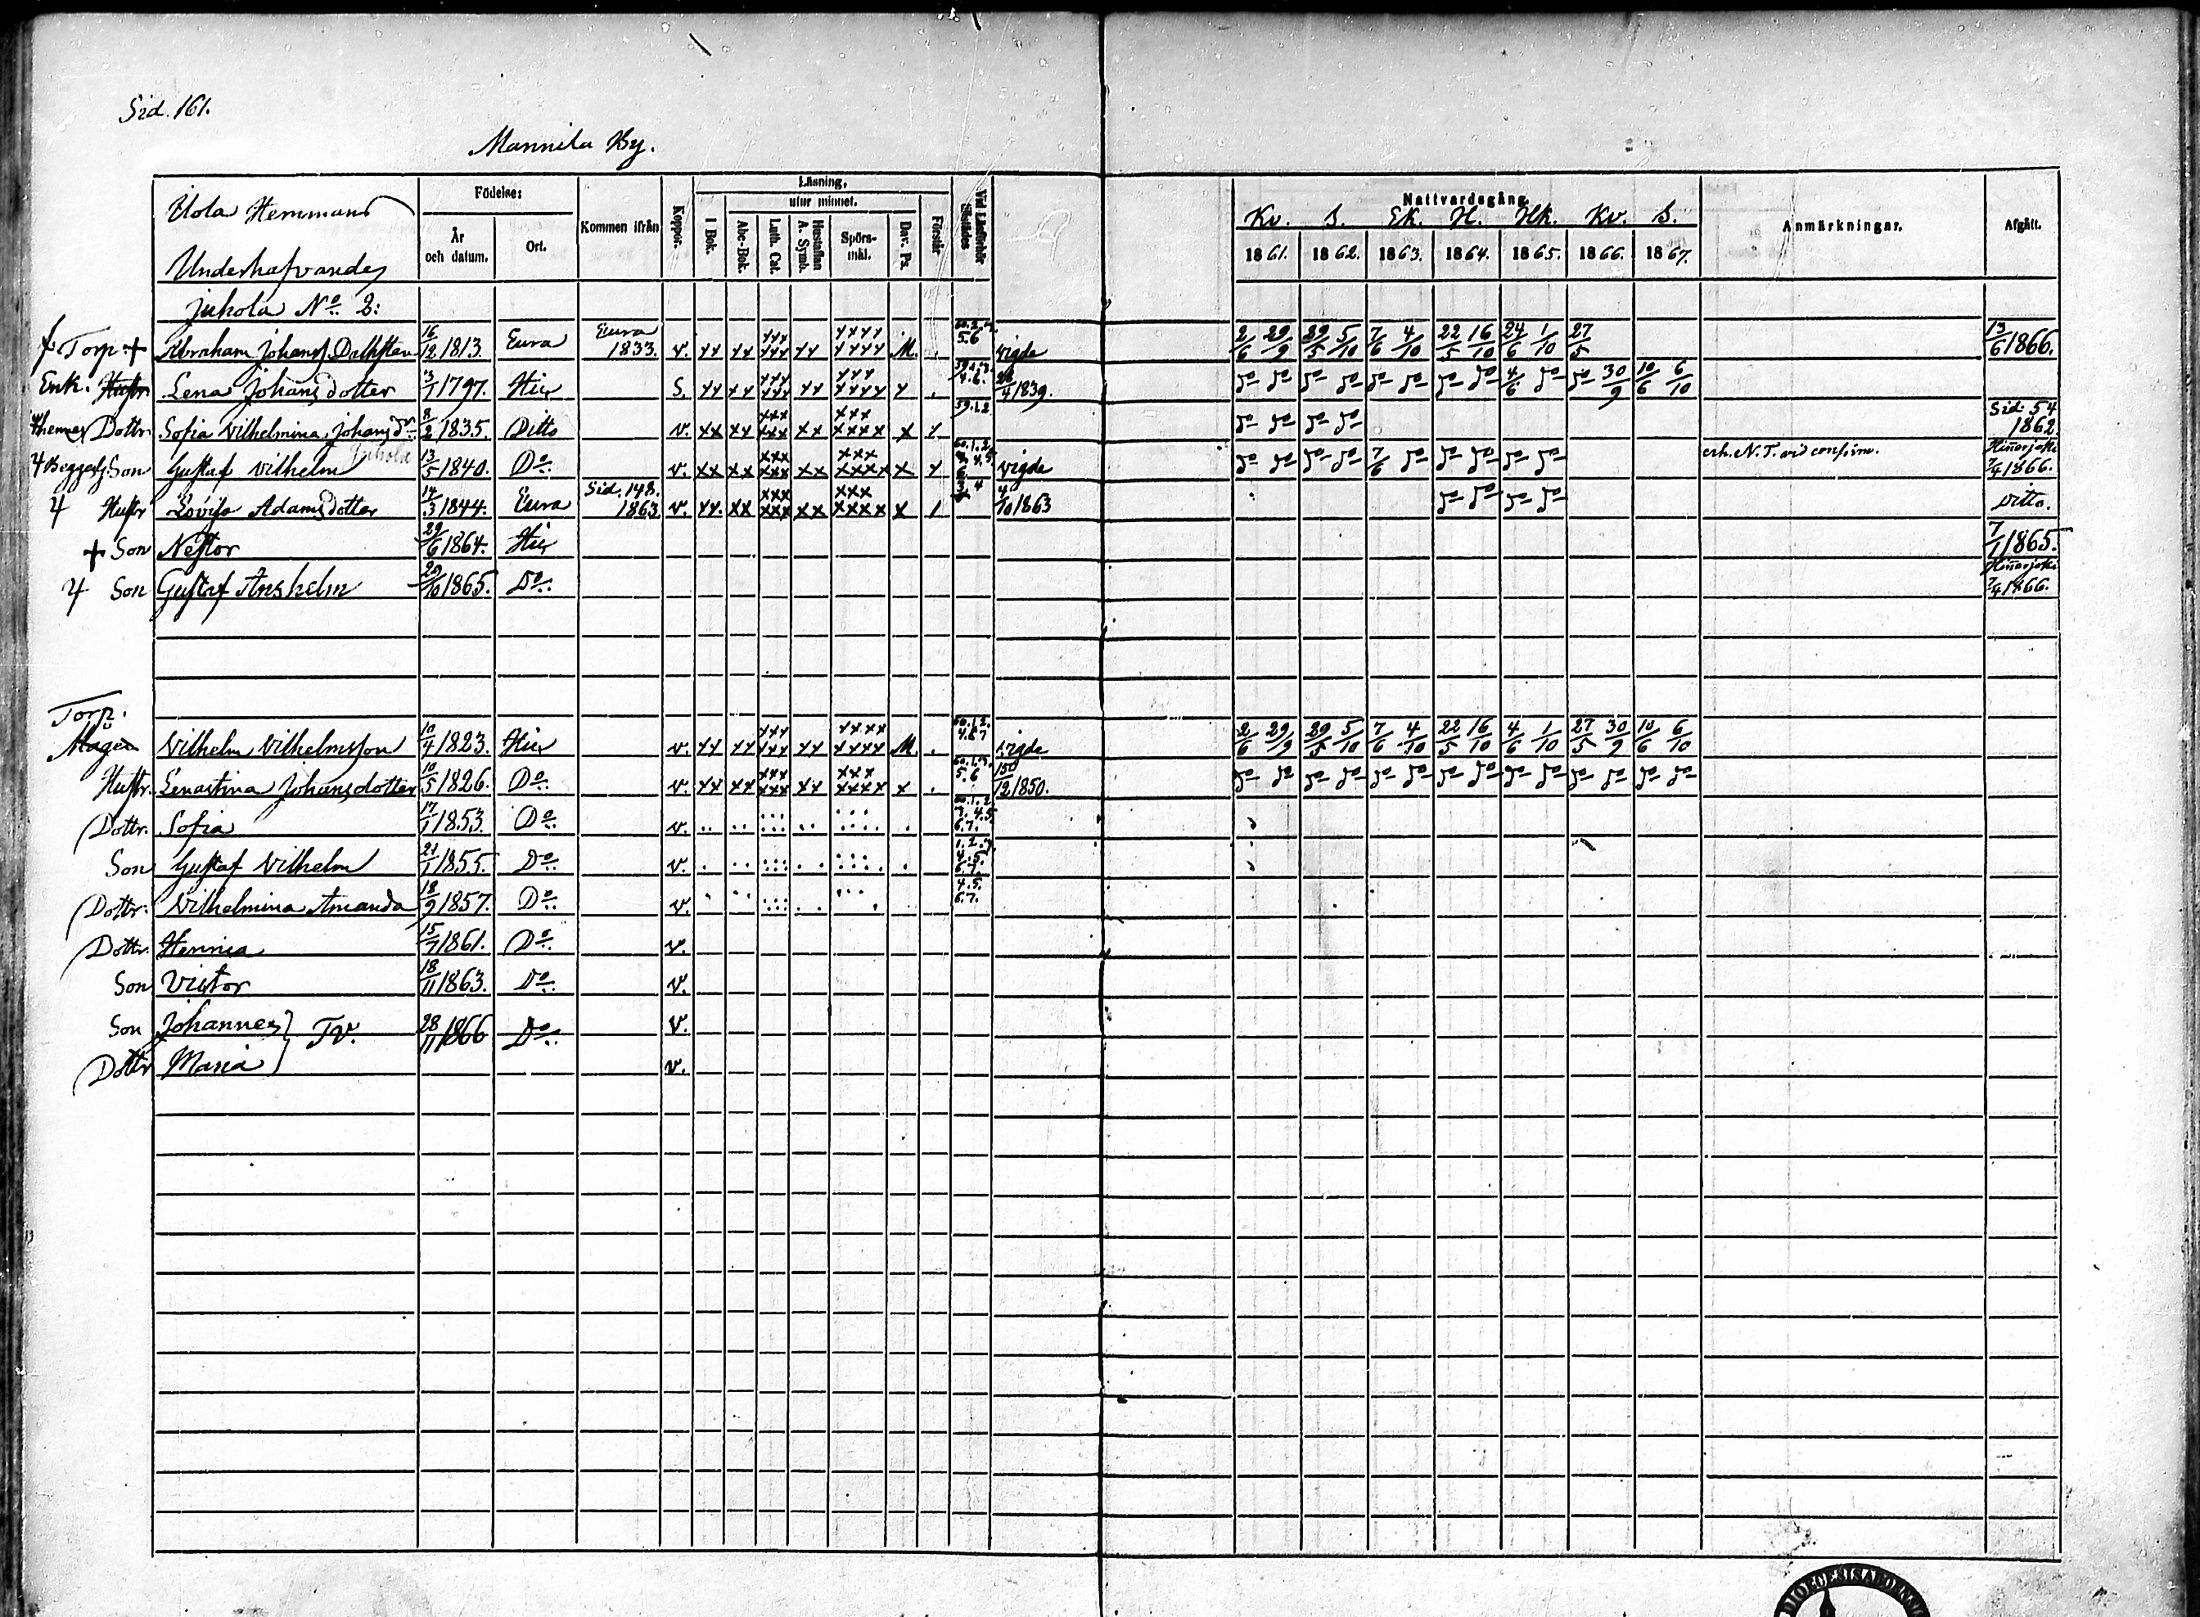 Sid. 161.
Mannila By.
Uola Hemmans
Underhafvandes
Födelse:
År och datum.
Ort.
Kommen ifrån
Koppor.
Läsning,
utur minnet.
I Bok.
Abc-Bok.
Luth. Cat.
Hustaflan A. Symb.
Spörs-mål.
Dav. Ps.
Förstår
Vid Läsförhör tillstädes
Nattvardsgång
Kv. S. Ek. H. Hk. Kv. S.
1861. 1862. 1863. 1864. 1865. 1866. 1867.
Anmärkningar.
Afgått.
Juhola No 2:
Torp. + Abraham Johanss. Dahlsten 16/12 1813. Eura Eura 1833. v. xx xx xxx xxx xx xxxx xxxx M. 5.6 vigde 2/6 29/9 29/5 5/10 7/6 4/10 22/5 16/10 24/6 1/10 27/5 13/6 1866.
Enk. Hustr. Lena Johansdotter 3/1 1797. Här S. xx xx xxx xxx xx xxx xxxx x 4.6. 1839. do do do do do do do do 4/6 do do 30/9 10/6 6/10
Dottr. Sofia Vilhelmina Johansdr 8/2 1835. Ditto v. xx xx xxx xxx xx xxx xxxx x x 59.1.2 do do do do Sid. 54 1862.
Son Gustaf Vilhelm Juhola 13/5 1840. Do v. xx xx xxx xxx xx xxx xxxx x x vigde do do do do 7/6 do do do do do erh. N. T. vid confirm. Hinnerjoki 7/4 1866.
Hustr Lovisa Adamsdotter 14/3 1844. Eura Sid. 148. 1863 v. xx. xx xxx xxx xx xxx xxxx x 1 4/10 1863 do do do do ditto.
+ Son Nestor 29/6 1864. Här 7/1 1865.
Son Gustaf Anshelm 29/10 1865. Do. Hinnerjoki 7/4 1866.
Torp.
Mågen Vilhelm Vilhelmsson 10/4 1823. Här v. xx xx xxx xxx xx xxxx xxxx M. . 60.1.2. 4.6.7 vigde 2/6 29/9 29/5 5/10 7/6 4/10 22/5 16/10 4/6 1/10 27/5 30/9 10/6 6/10
Hustr. Lenastina Johansdotter 10/5 1826. Do v. xx xx xxx xxx xx xxx xxxx x . 5.6 /12 1850. do do do do do do do do do do do do do do
Dottr. Sofia 17/1 1853. Do v. 60.1.2. 3.4.5. 6.7.
Son Gustaf Vilhelm 21/1 1855. Do v. 1.2.3. 4.5. 6.7.
Dottr. Vilhelmina Amanda 18/9 1857. Do. v. 4.5. 6.7.
Dottr. Hennia 15/7 1861. Do. v.
Son Victor 18/11 1863. Do v.
Son Johannes } Tv. 28/11 1866 Do. v.
Dottr Maria v.
DIOECESIS ABOENSIS